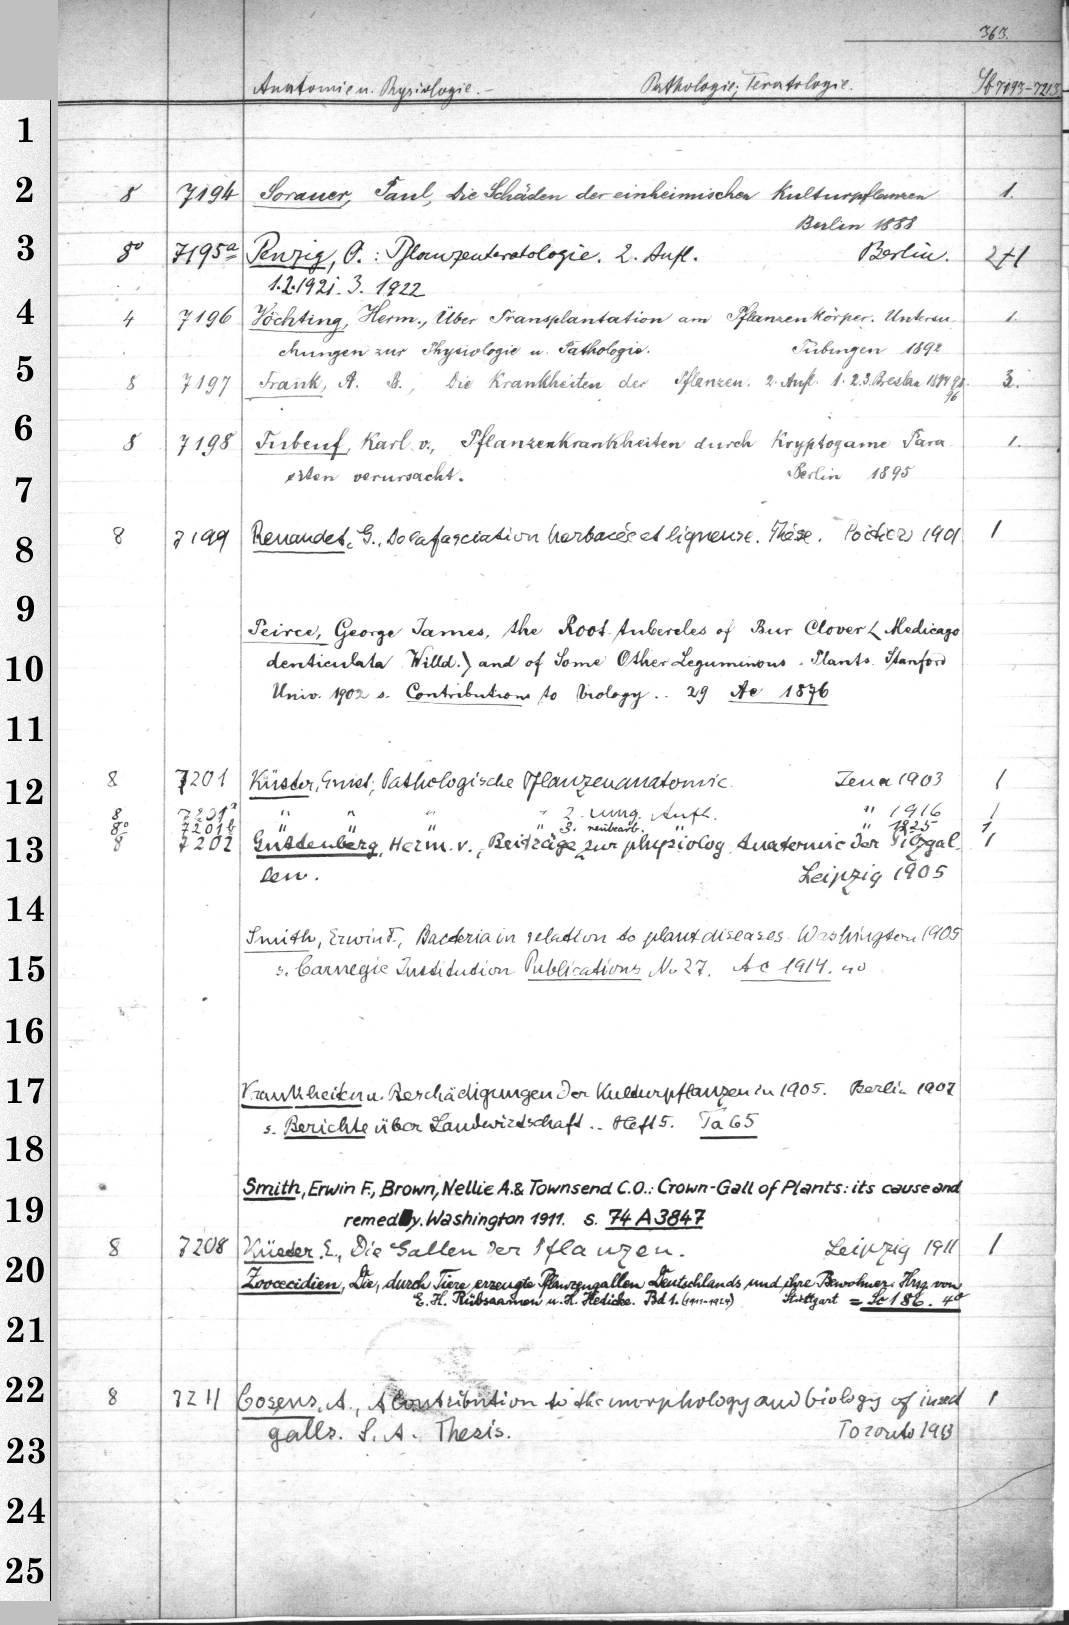 363.
Anatomie u. Physiologie. - Pathologie; Teratologie. Sb 7193-7213
1
2 8 7194 Sorauer, Paul, Die Schäden der einheimischen Kulturpflanzen 1.
Berlin 1888
3 8° 7195a Penzig, O.: Pflanzenteratologie. 2. Aufl. Berlin. 2+1
1.2.1921. 3. 1922
4 4 7196 Vöchting, Herm., Über Transplantation am Pflanzenkörper. Untersu- 1.
chungen zur Physiologie u. Pathologie. Tübingen 1892
5 8 7197 Frank, A. B., Die Krankheiten der Pflanzen. 2. Aufl. 1.2.3. Breslau 1894 95. 3.
96
6 8 7198 Tubeuf, Karl v., Pflanzenkrankheiten durch Kryptogame Para- 1.
siten verursacht. Berlin 1895
7
8 8 7199 Renaudet, G., De la fasciation herbacée et ligneuse. Thèse. Poitiers 1901 1
9 Peirce, George James, the Root-tubercles of Bur Clover (Medicago
10 denticulata Willd.) and of Some Other Leguminous-Plants. Stanford
Univ. 1902 s. Contributions to biology.. 29 Ac 1876
11
12 8 7201 Küster, Ernst, Pathologische Pflanzenanatomie. Jena 1903 1
8 7201a " " " " 2. umg. Aufl. " 1916 1
8° 7201b " " " " 3. neubearb. " " 1925 1
13 8 7202 Guttenberg, Herm. v., Beiträge zur physiolog. Anatomie der Pilzgal- 1
len. Leipzig 1905
14 Smith, Erwin F., Bacteria in relation to plant diseases. Washington 1905
15 s. Carnegie Institution Publications No 27. Ac 1914. 4°
16
17 Krankheiten u. Beschädigungen der Kulturpflanzen in 1905. Berlin 1907
s. Berichte über Landwirtschaft .. Heft 5. Ta 65
18
Smith, Erwin F., Brown, Nellie A. & Townsend C.O.: Crown-Gall of Plants: its cause and
19 remedy. Washington 1911. s. 74 A 3847
8 7208 Küster, E., Die Gallen der Pflanzen. Leipzig 1911 1
20 Zoocecidien, Die, durch Tiere erzeugte Pflanzengallen Deutschlands und ihre Bewohner. Hrsg. von
E. H. Rübsaamen u. H. Hedicke. Bd 1. (1911-1929) Stuttgart = Sc 186. 4°
21
22 8 7211 Cosens, A., A Contribution to the morphology and biology of insect 1
galls. S. A. Thesis. Toronto 1913
23
24
25